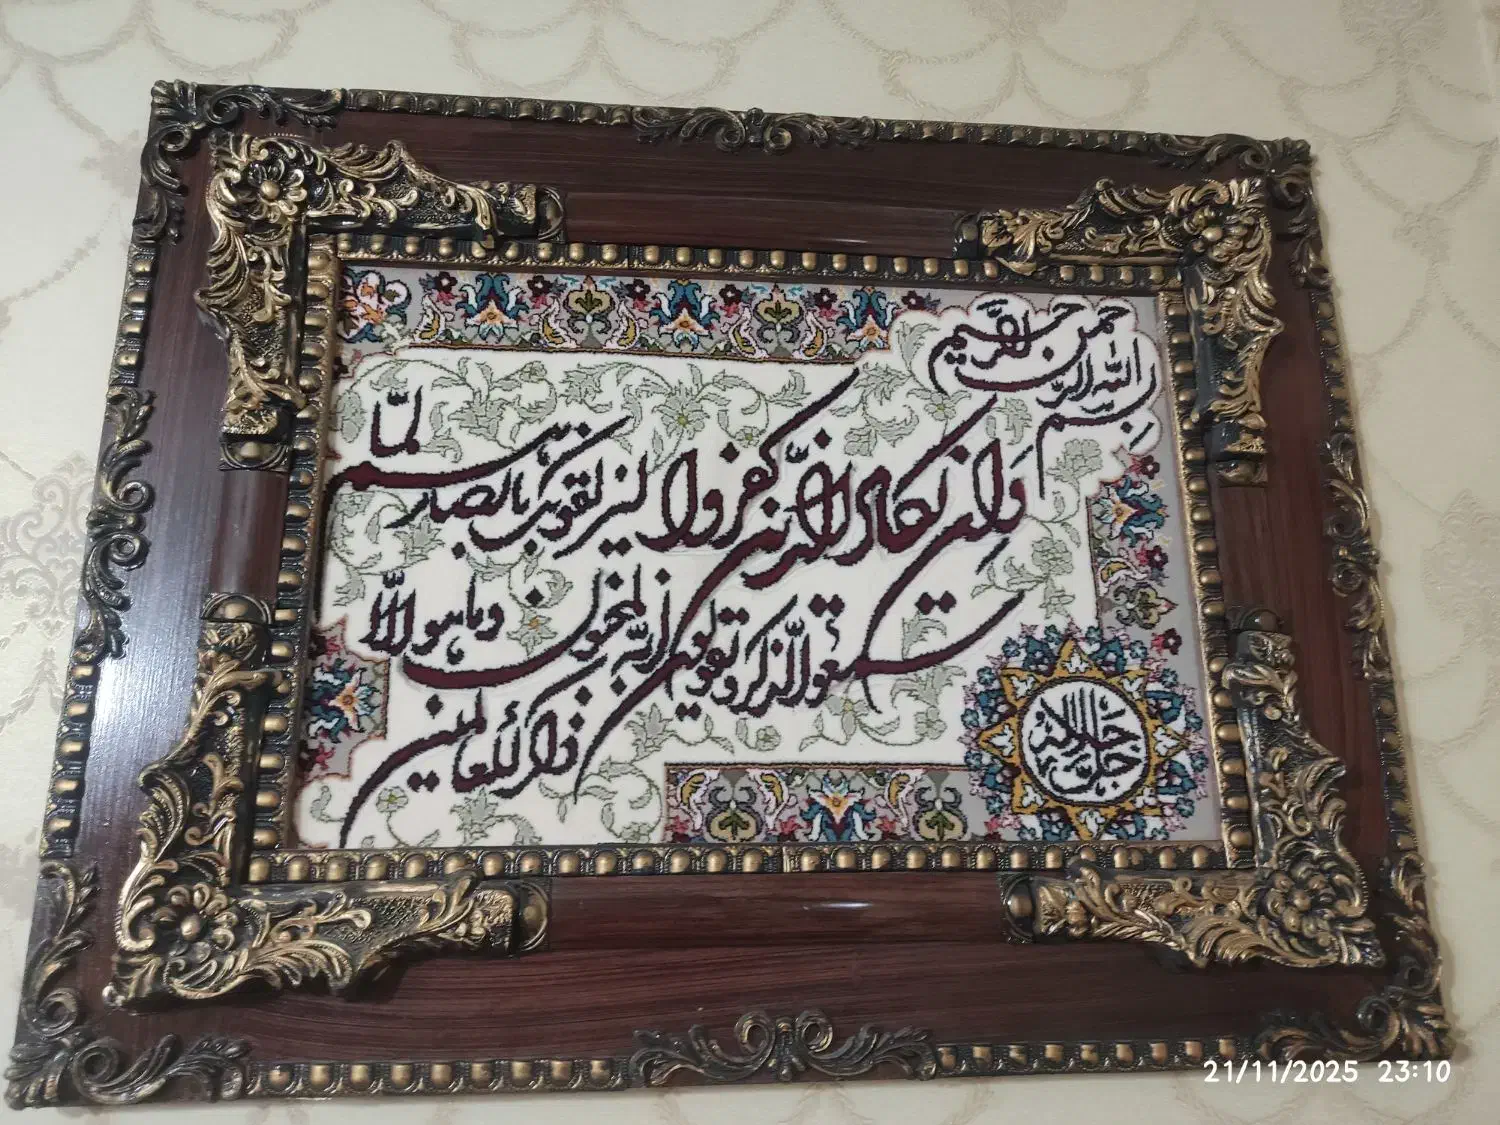 بسم الله الرحمن الرحیم
وان یکاد الذین کفروا لیزلقونک بابصارهم لما
سمعوا الذکر و یقولون انه لمجنون وما هو الا
ذکر للعالمین
جل جلاله
21/11/2025 23:10